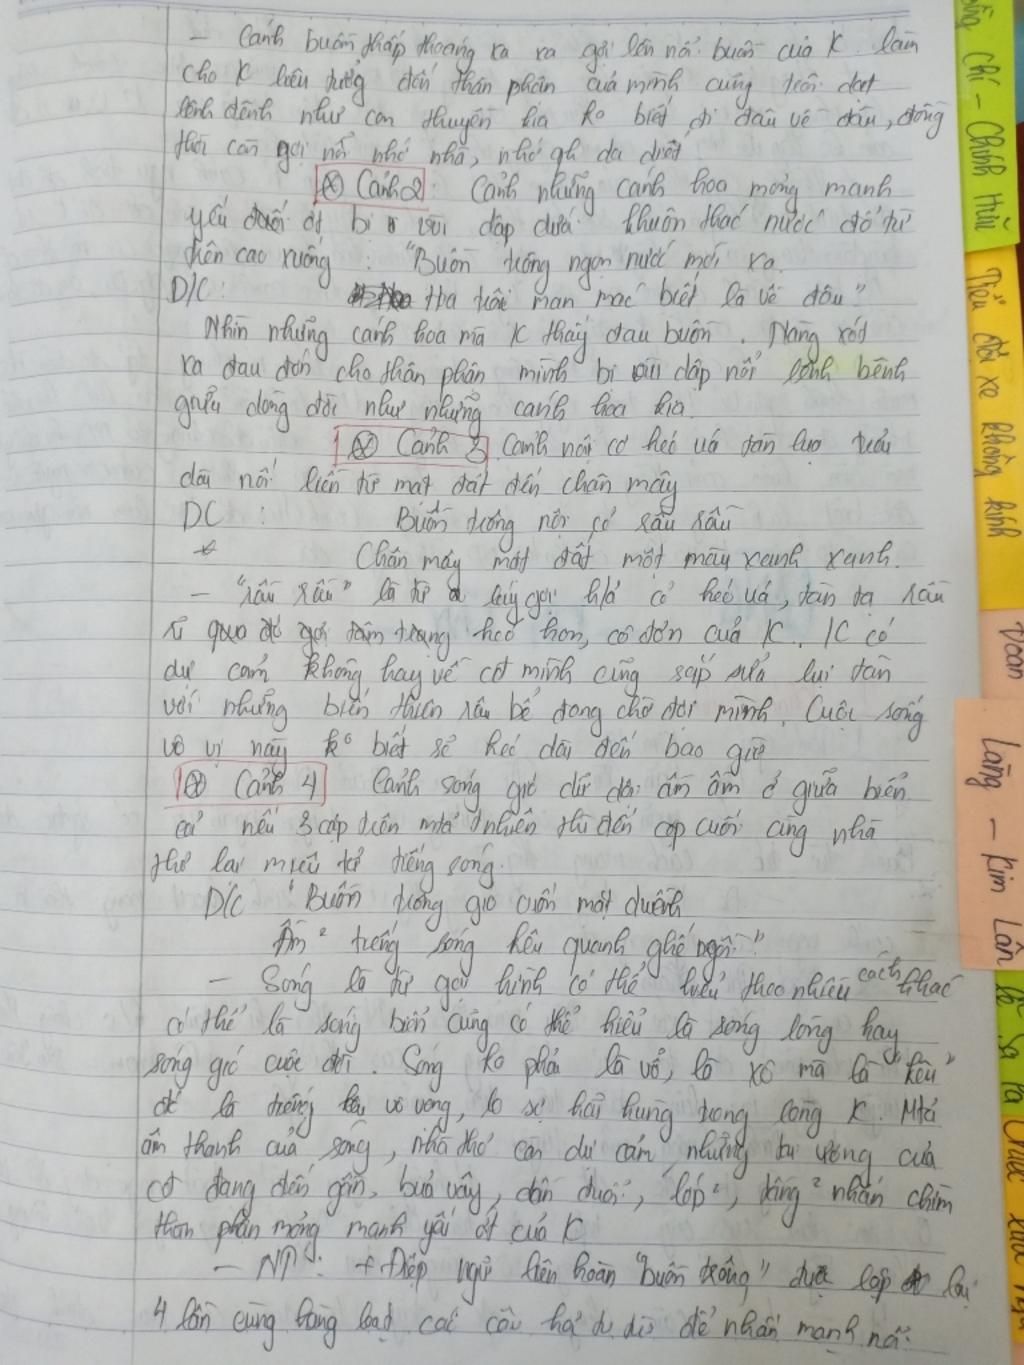 - Cánh buồm thấp thoáng xa xa gợi lên nỗi buồn của K. làm
cho K liên tưởng đến thân phận của mình cũng trôi dạt
lênh đênh như con thuyền kia ko biết đi đâu về đâu, đồng
thời còn gợi nỗi nhớ nhà, nhớ gđ da diết
⊗ Cảnh 2: Cảnh những cánh hoa mỏng manh
yếu đuối ớt bị vùi dập dưới thuôn thác nước đổ từ
trên cao xuống : "Buồn trông ngọn nước mới xa.
D/C: Hoa trôi man mác biết là về đâu"
Nhìn những cánh hoa mà K thấy đau buồn. Nàng xót
xa đau đớn cho thân phận mình bị vùi dập nổi lênh bênh
giữa dòng đời như những cánh hoa kia.
⊗ Cảnh 3 Cảnh nội cỏ héo úa tàn lụa trải
dài nối liền từ mặt đất đến chân mây
DC : Buồn trông nội cỏ rầu rầu
Chân mây mặt đất một màu xanh xanh.
- "rầu rầu" là từ láy gợi h/ả cỏ héo úa, tàn tạ rầu
rĩ qua đó gợi tâm trạng héo hon, cô đơn của K. K có
dự cảm không hay về cđ mình cũng sắp sửa lụi tàn
với những biến thiên râu bể đang chờ đợi mình. Cuộc sống
vô vị này ko biết sẽ kéo dài đến bao giờ
⊗ Cảnh 4 Cảnh sóng gió dữ dội ầm ầm ở giữa biển
cả nếu 3 cặp trên mtả tnhiên thì đến cặp cuối cùng nhà
thơ lại miêu tả tiếng sóng.
D/C "Buồn trông gió cuốn mặt duềnh
Ầm ² tiếng sóng kêu quanh ghế ngồi"
- Sóng là từ gợi hình có thể hiểu theo nhiều cách khác
có thể là sóng biển cũng có thể hiểu là sóng lòng hay
sóng gió cuộc đời. Sóng ko phải là vỗ, là xô mà là "kêu"
đó là tiếng kêu vô vọng, lo sợ hãi hùng trong lòng K. Mtả
âm thanh của sóng, nhà thơ còn dự cảm những tai ương của
cđ đang đến gần, bủa vây, dồn đuổi, lớp², tầng² nhấn chìm
thân phận mỏng manh yếu ớt của K
- NT: + Điệp ngữ liên hoàn "buồn trông" được lặp lại
4 lần cùng hàng loạt các câu hỏi tu từ để nhấn mạnh nỗi
Đồng Chí - Chính Hữu
Tiểu đội xe không kính
Đoàn
Làng - Kim Lân